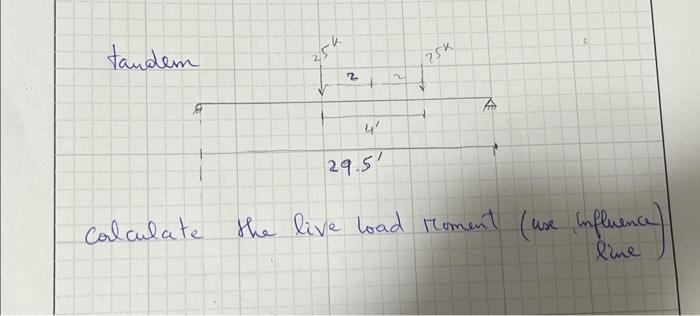 tandem
25k 25k
2 2
4'
29.5'
Calculate the live load Moment (use influence
line)